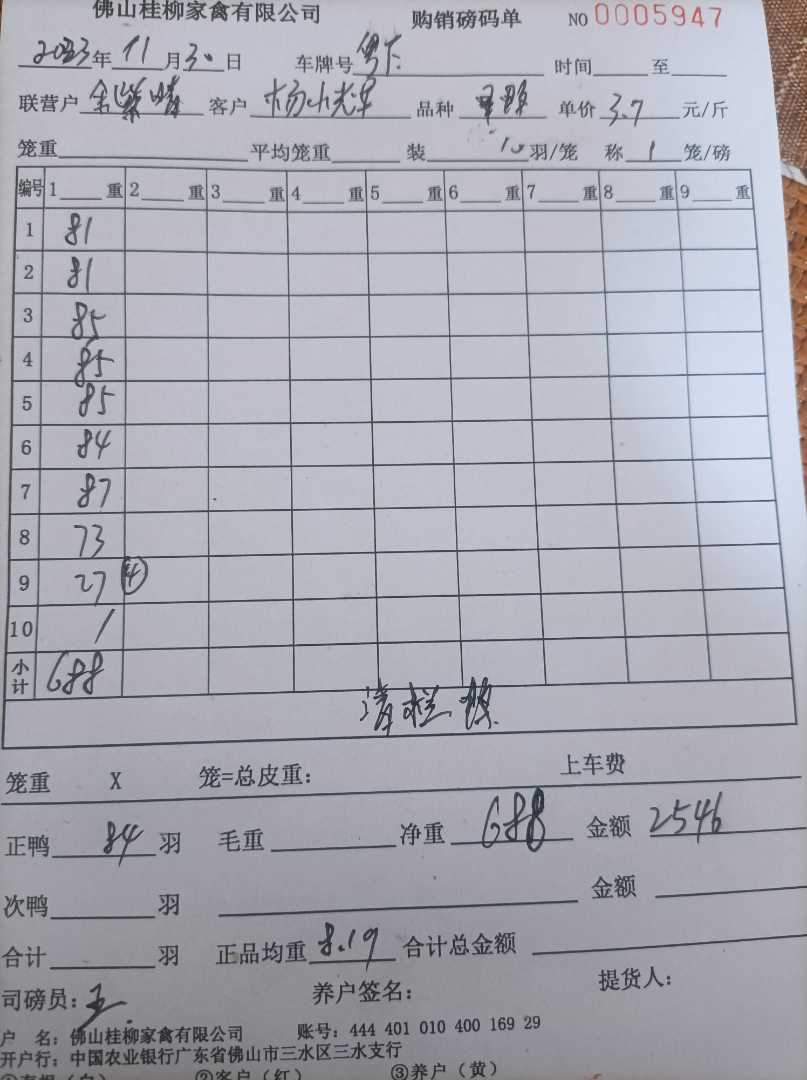 佛山桂柳家禽有限公司 购销磅码单 NO 0005947
2023年 11月30日 车牌号 粤 时间 至
联营户 余紫晴 客户 杨小光军 品种 单价 3.7 元/斤
笼重 平均笼重 装 10 羽/笼 称 1 笼/磅
编号 1 重 2 重 3 重 4 重 5 重 6 重 7 重 8 重 9 重
1 81
2 81
3 85
4 85
5 85
6 84
7 87
8 73
9 27 ④
10 /
小计 688
清栏
笼重 X 笼=总皮重: 上车费
正鸭 84 羽 毛重 净重 688 金额 2546
次鸭 羽 金额
合计 羽 正品均重 8.19 合计总金额
司磅员: 王 养户签名: 提货人:
户 名: 佛山桂柳家禽有限公司 账号: 444 401 010 400 169 29
开户行: 中国农业银行广东省佛山市三水区三水支行
①存根（白） ②客户（红） ③养户（黄）